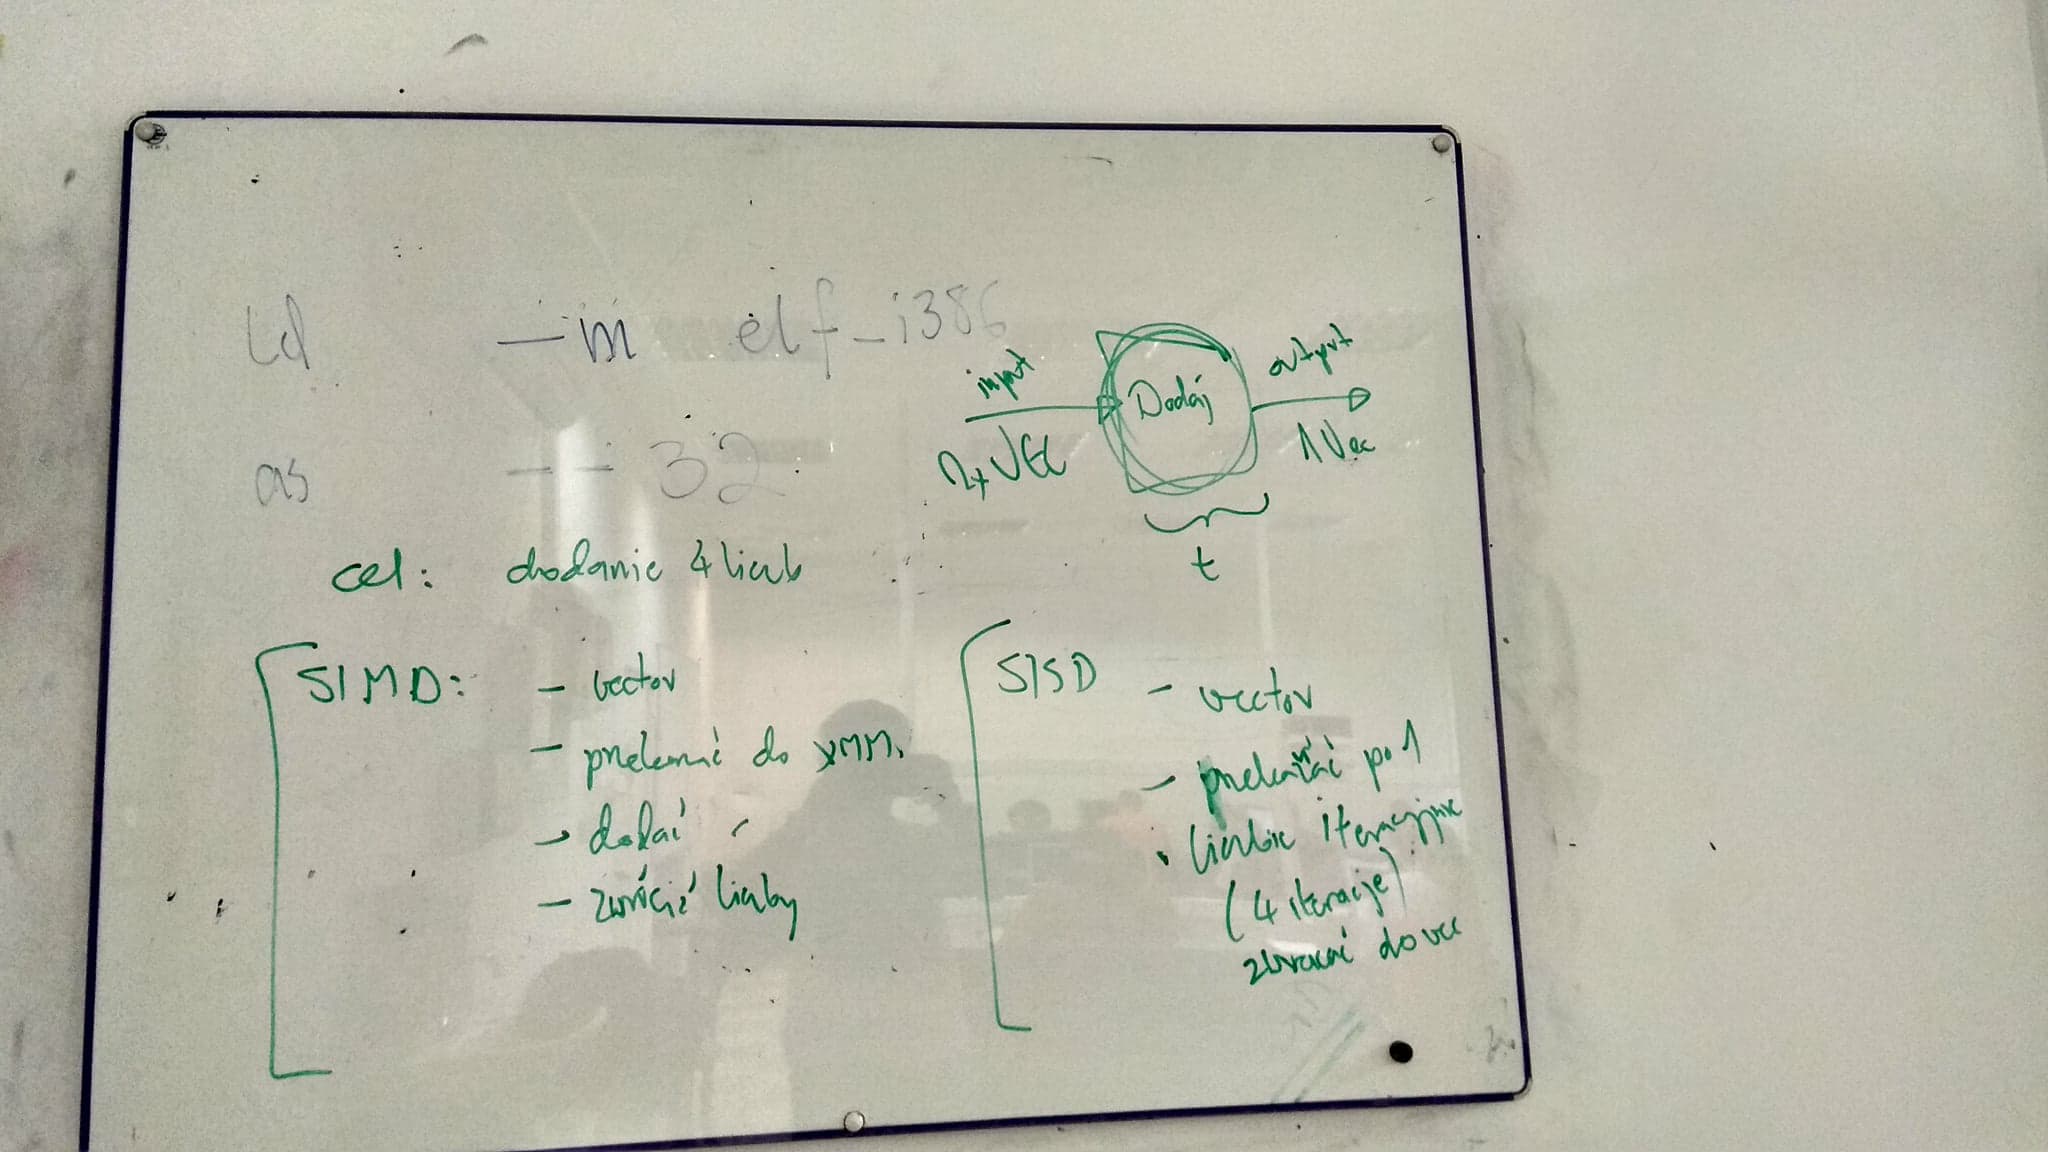 ld -m elf_i386
as --32
input
Dodaj
output
2x VEC
1 Vec
t
cel: dodanie 4 liczb
SIMD: - vector
- przekazać do XMM.
- dodać
- zwrócić liczby
SISD - vector
- przekazać po 1
liczbie iteracyjnie
(4 iteracje)
zwracać do vec